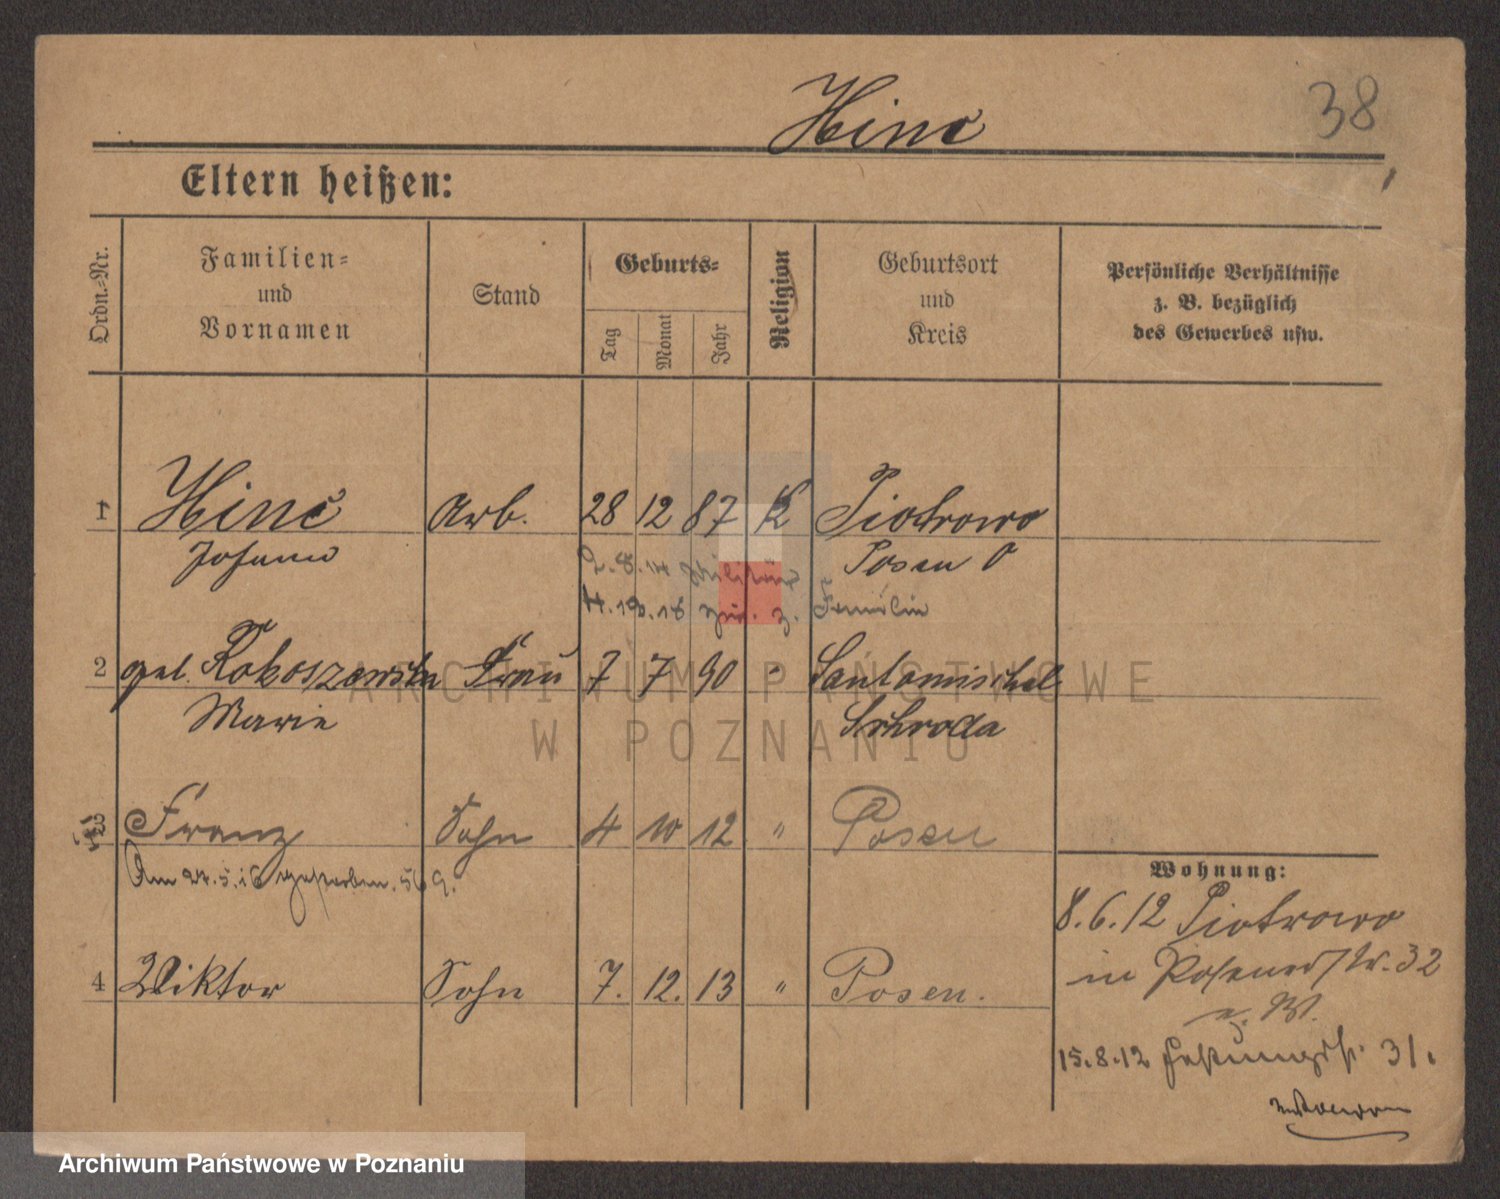 Hinc
38
Eltern heißen:
Ordn.-Nr.
Familien-
und
Vornamen
Stand
Geburts-
Tag
Monat
Jahr
Religion
Geburtsort
und
Kreis
Persönliche Verhältnisse
z. B. bezüglich
des Gewerbes usw.
1 Hinc Arb. 28 12 87 K Piotrowo
Johann Posen O
2.8.14 Militär
4.12.18 z. Familie
2 geb. Kokoszewska Frau 7 7 90 " Santomischel
Marie Schroda
3 Franz Sohn 4 10 12 " Posen
Am 24.5.16 gestorben. 569.
4 Wiktor Sohn 7. 12. 13 " Posen.
Wohnung:
8.6.12 Piotrowo
in Posenerstr. 32
15.8.12 Festungsstr. 31.
ARCHIWUM PAŃSTWOWE
W POZNANIU
Archiwum Państwowe w Poznaniu